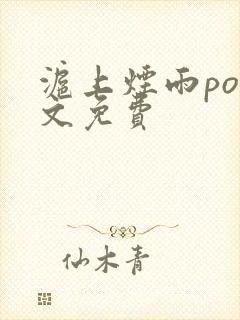 滬上煙雨po
文免費
仙木青